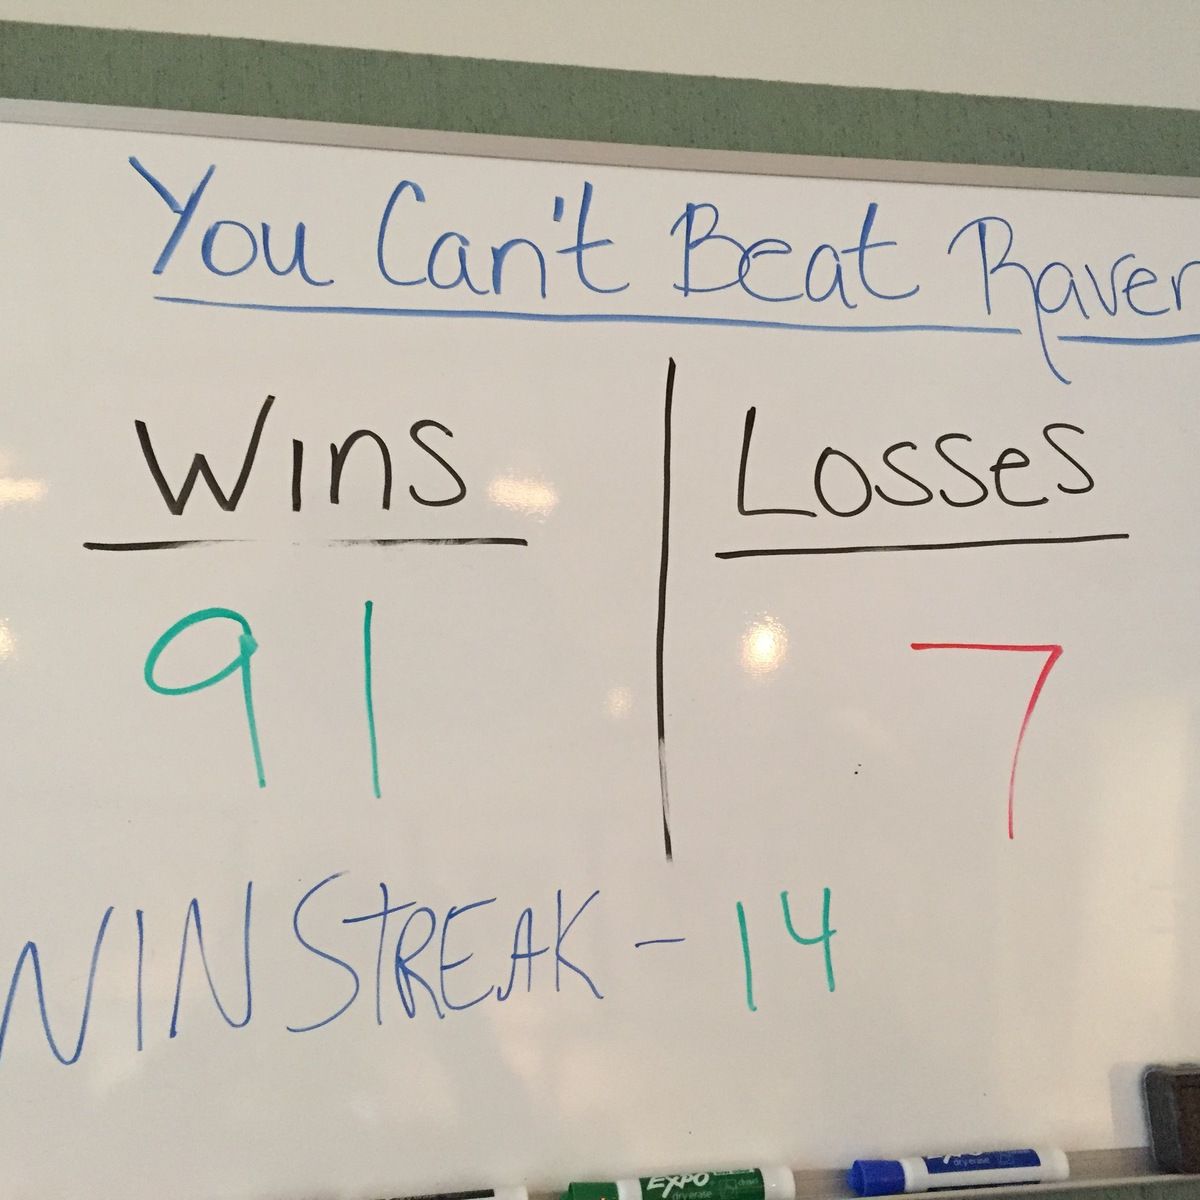 You Can't Beat Raven
Wins Losses
91 7
WIN STREAK - 14
EXPO
dry erase
EXPO
dry erase